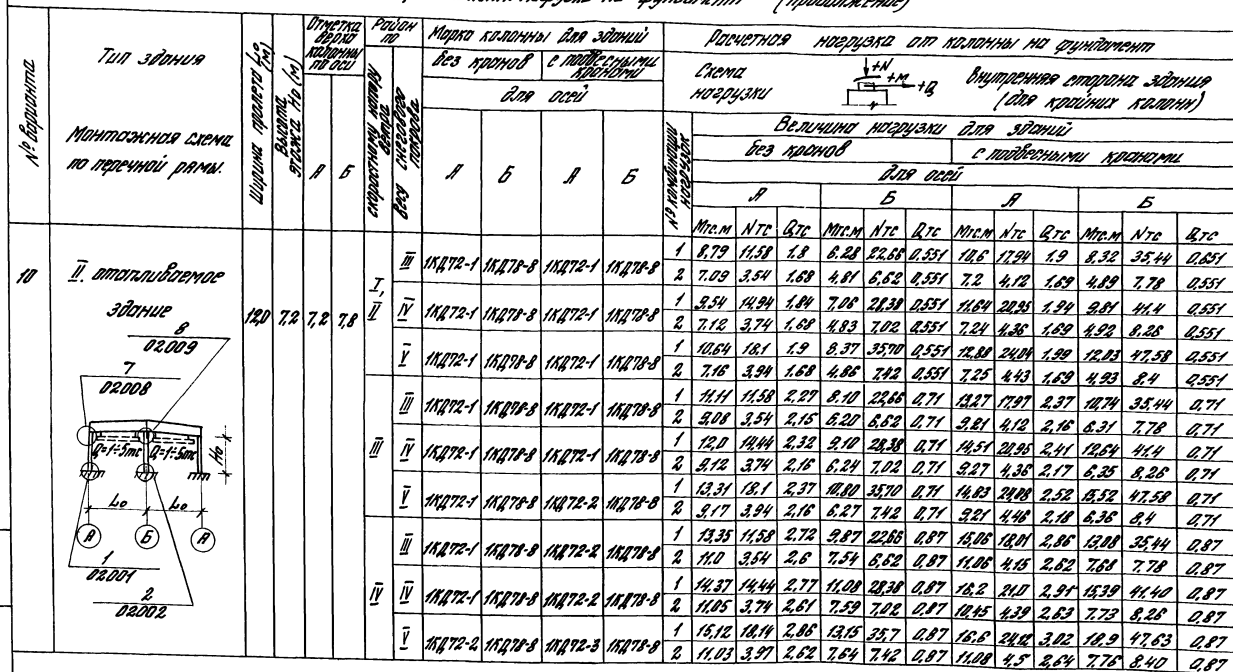 (продолжение)
№ варианта
Тип здания
Монтажная схема по перечной рамы.
Ширина пролета L₀ (м)
Высота этажа H₀ (м)
Отметка верха колонны по оси
А Б
Район по
скоростному напору ветра
весу снегового покрова
Марка колонны для зданий
без кранов с подвесными кранами
для осей
А Б А Б
№ комбинации нагрузок
Расчетная нагрузка от колонны на фундамент
Схема нагрузки
+N +M +Q
Внутренняя сторона здания (для крайних колонн)
Величина нагрузки для зданий
без кранов с подвесными кранами
для осей
А Б А Б
Mтс.м Nтс Qтс Mтс.м Nтс Qтс Mтс.м Nтс Qтс Mтс.м Nтс Qтс
10 II. отапливаемое здание 12,0 7,2 7,2 7,8
I, II III 1КД72-1 1КД78-8 1КД72-1 1КД78-8 1 8,79 11,58 1,8 6,28 22,66 0,551 10,6 17,94 1,9 8,32 35,44 0,651
2 7,09 3,54 1,68 4,81 6,62 0,551 7,2 4,12 1,69 4,89 7,78 0,551
IV 1КД72-1 1КД78-8 1КД72-1 1КД78-8 1 9,54 14,94 1,84 7,06 28,38 0,551 11,64 20,95 1,94 9,81 41,4 0,551
2 7,12 3,74 1,68 4,83 7,02 0,551 7,24 4,36 1,69 4,92 8,26 0,551
V 1КД72-1 1КД78-8 1КД72-1 1КД78-8 1 10,64 18,1 1,9 8,37 35,70 0,551 12,88 24,04 1,99 12,03 47,58 0,551
2 7,16 3,94 1,68 4,86 7,42 0,551 7,25 4,43 1,69 4,93 8,4 0,551
III III 1КД72-1 1КД78-8 1КД72-1 1КД78-8 1 11,11 11,58 2,27 8,10 22,66 0,71 13,27 17,97 2,37 10,74 35,44 0,71
2 9,08 3,54 2,15 6,20 6,62 0,71 9,21 4,12 2,16 6,31 7,78 0,71
IV 1КД72-1 1КД78-8 1КД72-1 1КД78-8 1 12,0 14,44 2,32 9,10 28,38 0,71 14,51 20,95 2,41 12,64 41,4 0,71
2 9,12 3,74 2,16 6,24 7,02 0,71 9,27 4,36 2,17 6,35 8,26 0,71
V 1КД72-1 1КД78-8 1КД72-2 1КД78-8 1 13,31 18,1 2,37 10,80 35,70 0,71 14,83 24,08 2,52 15,52 47,58 0,71
2 9,17 3,94 2,16 6,27 7,42 0,71 9,21 4,46 2,18 6,36 8,4 0,71
IV III 1КД72-1 1КД78-8 1КД72-2 1КД78-8 1 13,35 11,58 2,72 9,87 22,66 0,87 15,06 18,01 2,86 13,08 35,44 0,87
2 11,0 3,54 2,6 7,54 6,62 0,87 11,06 4,15 2,62 7,68 7,78 0,87
IV 1КД72-1 1КД78-8 1КД72-2 1КД78-8 1 14,37 14,44 2,77 11,08 28,38 0,87 16,2 21,0 2,91 15,39 41,40 0,87
2 11,05 3,74 2,61 7,59 7,02 0,87 10,45 4,39 2,63 7,73 8,26 0,87
V 1КД72-2 1КД78-8 1КД72-3 1КД78-8 1 15,12 18,14 2,86 13,15 35,7 0,87 16,6 24,12 3,02 18,9 47,63 0,87
2 11,03 3,97 2,62 7,64 7,42 0,87 11,08 4,5 2,64 7,76 8,40 0,87
8
02009
7
02008
Q=1÷5тс Q=1÷5тс
H₀
L₀ L₀
А Б А
1
02001
2
02002